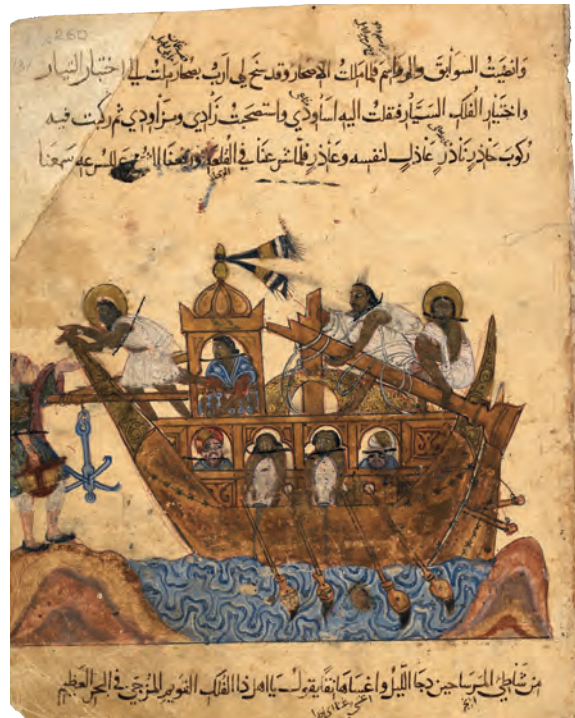 260
وانضيت السوابق والرواسم فلما مللت الاصحار وقد سنح لي ارب بصحار ملت الى اختبار التيار
واختيار الفلك السيار فنقلت اليه اساودي واستصحبت زادي ومزاودي ثم ركبت فيه
ركوب حاذر ناذر عاذل لنفسه وعاذر فلما شرعنا في القلعة ورفعنا الشرع للسرعه سمعنا
من شاطئ المرسا حين دجا الليل واغسا هاتفا يقول يا اهل ذا الفلك القويم المزجى في البحر العظيم